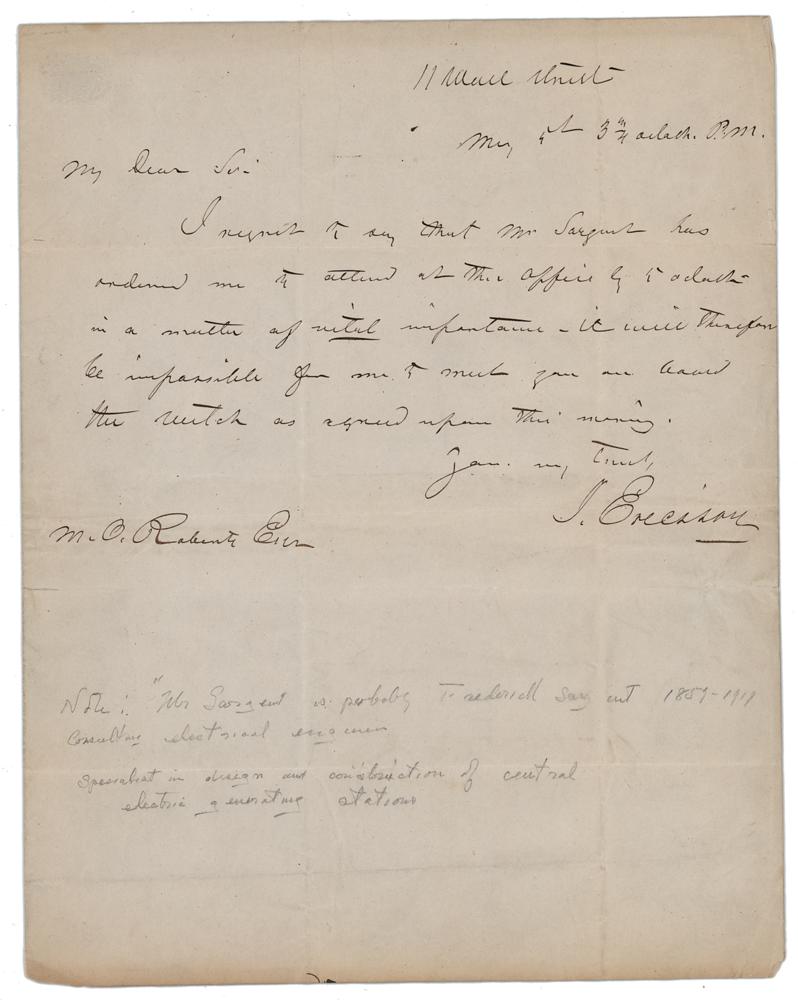 11 Wall Street
May 3 3/4 oclock. P.M.
My Dear Sir
I regret to say that Mr Sargent has
ordered me to attend at the office by 5 oclock
in a matter of vital importance - it will therefore
be impossible for me to meet you on board
the as agreed upon this morning.
Your. truly,
J. Ericsson
M. O. Roberts Esqr
Note: "Mr Sargent is probably Frederick Sargent 1859-1919
Consulting electrical engineer
Specialist in design and construction of central
electric generating stations